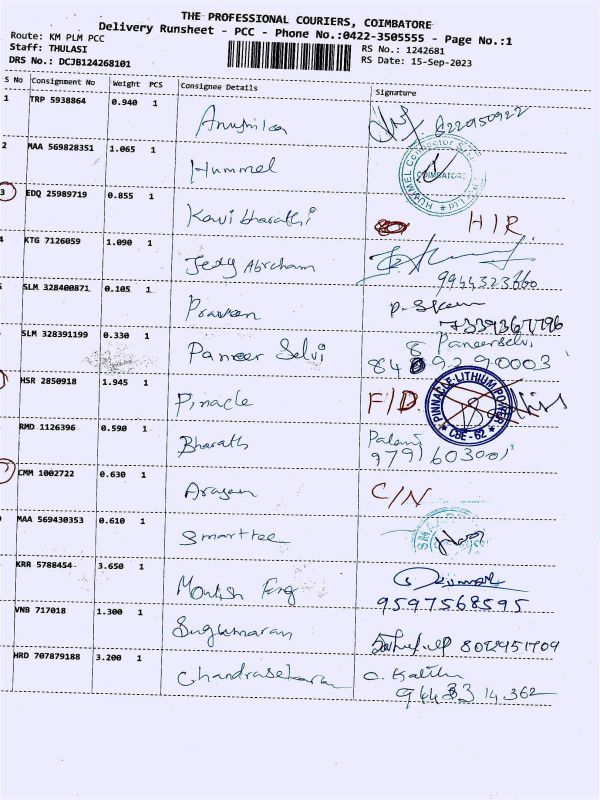 THE PROFESSIONAL COURIERS, COIMBATORE
Delivery Runsheet - PCC - Phone No.:0422-3505555 - Page No.:1
Route: KM PLM PCC
Staff: THULASI
DRS No.: DCJB124268101
RS No.: 1242681
RS Date: 15-Sep-2023
S No Consignment No Weight PCS Consignee Details Signature
1 TRP 5938864 0.940 1 Anushka
2 MAA 569828351 1.065 1 Hummel COIMBATORE
3 EDQ 25989719 0.855 1 Kavibharathi H/R.
4 KTG 7126059 1.090 1 Jedy Abraham
9944323660
SLM 328400871 0.105 1 Praveen
7339367796
SLM 328391199 0.330 1 Paneer Selvi Paneerselvi
HSR 2850918 1.945 1 Pinacle F/D PINNACAP-LITHIUM POWER CBE-62
RMD 1126396 0.590 1 Bharath Palani
9791603001
CMM 1002722 0.630 1 C/N
MAA 569430353 0.610 1 Smarttec
KRR 5788454 3.650 1
9597568595
VNB 717018 1.300 1 Sugumaran
HRD 707879188 3.200 1 Chandrasekaran